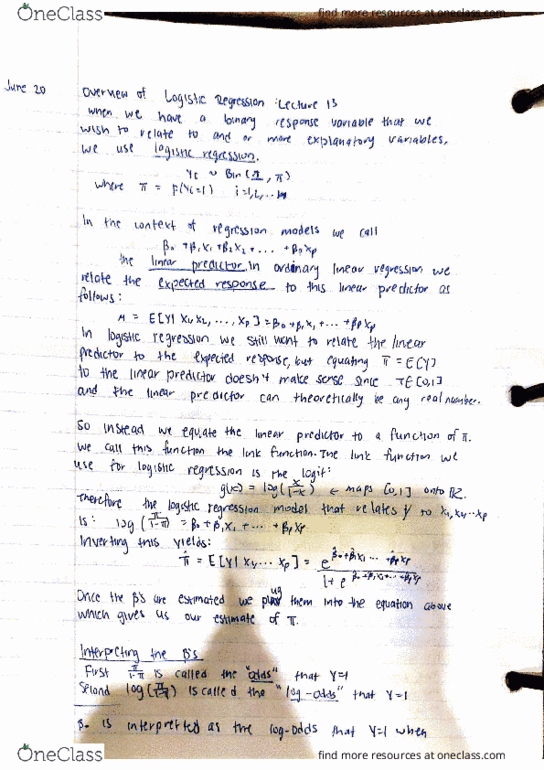 OneClass
find more resources at oneclass.com
June 20
Overview of Logistic Regression : Lecture 13
when we have a binary response variable that we
wish to relate to and or more explanatory variables,
we use logistic regression.
Yi ~ Bin(1, π)
where π = P(Yi=1) i=1,2,...
In the context of regression models we call
β₀ + β₁x₁ + β₂x₂ + ... + βpxp
the linear predictor. in ordinary linear regression we
relate the expected response to this linear predictor as
follows:
μ = E[Y| x₁,x₂, ..., xp] = β₀+β₁x₁ +... +βpxp
In logistic regression we still want to relate the linear
predictor to the expected response, but equating π = E[Y]
to the linear predictor doesn't make sense since π∈[0,1]
and the linear predictor can theoretically be any real number.
So instead we equate the linear predictor to a function of π.
we call this function the link function. The link function we
use for logistic regression is the logit:
g(x) = log(x/1-x) ← maps [0,1] onto ℝ.
Therefore the logistic regression model that relates y to x₁,x₂...xp
is: log(π/1-π) = β₀+β₁x₁ +... +βpxp
Inverting this yields:
π̂ = E[Y| x₁... xp] = e^(β̂₀+β̂₁x₁ ... +β̂pxp) / 1+ e^(β̂₀+β̂₁x₁+...+β̂pxp)
Once the β's are estimated we plug them into the equation above
which gives us our estimate of π.
Interpreting the β's
First π/1-π is called the "odds" that Y=1
Second log(π/1-π) is called the "log-odds" that Y=1
β₀ is interpretted as the log-odds that Y=1 when
OneClass
find more resources at oneclass.com